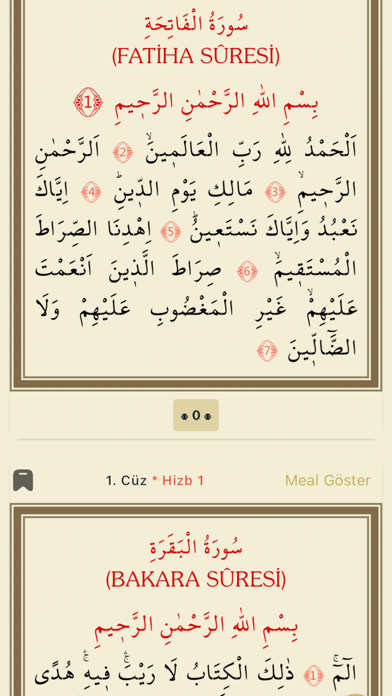 سُورَةُ الْفَاتِحَةِ
(FATİHA SÛRESİ)
بِسْمِ اللهِ الرَّحْمٰنِ الرَّحٖيمِ ﴿1﴾
اَلْحَمْدُ لِلّٰهِ رَبِّ الْعَالَمٖينَۙ ﴿2﴾ اَلرَّحْمٰنِ
الرَّحٖيمِۙ ﴿3﴾ مَالِكِ يَوْمِ الدّٖينِۜ ﴿4﴾ اِيَّاكَ
نَعْبُدُ وَاِيَّاكَ نَسْتَعٖينُۜ ﴿5﴾ اِهْدِنَا الصِّرَاطَ
الْمُسْتَقٖيمَۙ ﴿6﴾ صِرَاطَ الَّذٖينَ اَنْعَمْتَ
عَلَيْهِمْۙ غَيْرِ الْمَغْضُوبِ عَلَيْهِمْ وَلَا
الضَّٓالّٖينَ ﴿7﴾
0
1. Cüz * Hizb 1 Meal Göster
سُورَةُ الْبَقَرَةِ
(BAKARA SÛRESİ)
بِسْمِ اللهِ الرَّحْمٰنِ الرَّحٖيمِ
الٓمٓۚ ﴿1﴾ ذٰلِكَ الْكِتَابُ لَا رَيْبَۚۛ فٖيهِۚۛ هُدًى